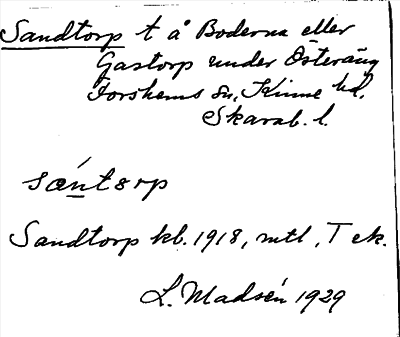 Sandtorp t å Boderna eller
Gastorp under Österäng
Forshems sn, Kinne hd.
Skarab. l.
sántorp
Sandtorp kb. 1918, mtl, T ek.
L. Madsén 1929